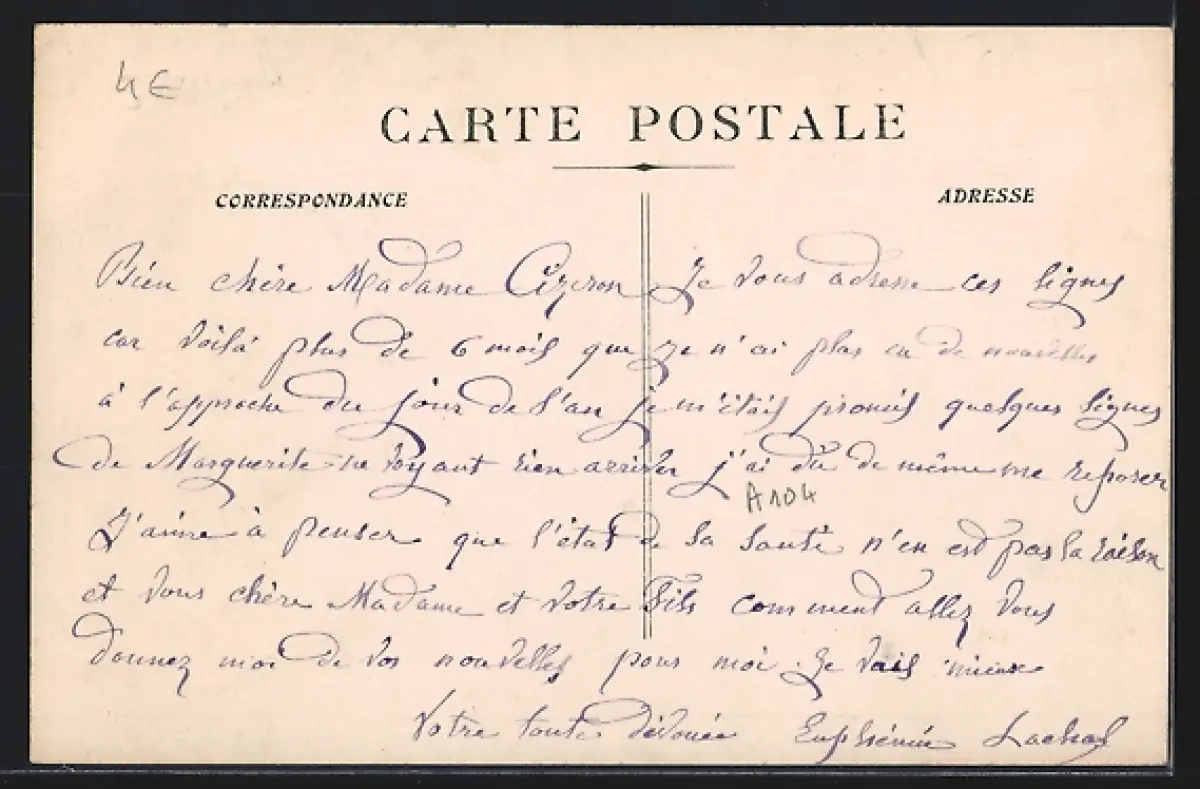 4€
CARTE POSTALE
CORRESPONDANCE
ADRESSE
Bien chère Madame Cizeron Je vous adresse ces lignes
car voilà plus de 6 mois que je n'ai plus eu de nouvelles
à l'approche du jour de l'an je m'étais promis quelques lignes
de Marguerite ne voyant rien arriver j'ai dû de même me reposer
A104
J'aime à penser que l'état de sa santé n'en est pas la raison
et vous chère Madame et votre Fils comment allez vous
donnez moi de vos nouvelles pour moi je vais mieux
Votre toute dévouée Euphémie Lachal